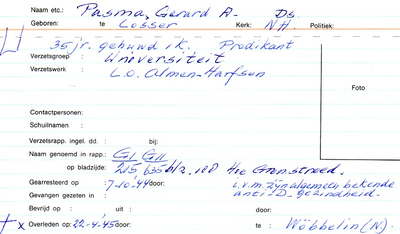 Naam etc.: Pasma, Gerard A. Ds.
Geboren: te Losser Kerk: N.H. Politiek:
35 jr. gehuwd 1 K. Predikant
Verzetsgroep : Universiteit
Verzetswerk : L.O. Almen-Harfsen
Foto
Contactpersonen:
Schuilnaam :
Verzetsrapp. ingel. dd. : bij:
Naam genoemd in rapp.: GI, GII
op bladzijde: 215, 635
Gearresteerd op : 7-10-'44 door: i.v.m. zijn algemeen bekende
Gevangen gezeten in : anti-D. gezindheid.
Bevrijd op : uit : door:
† x Overleden op : 22-4-'45 door: te : Wöbbelin (N).